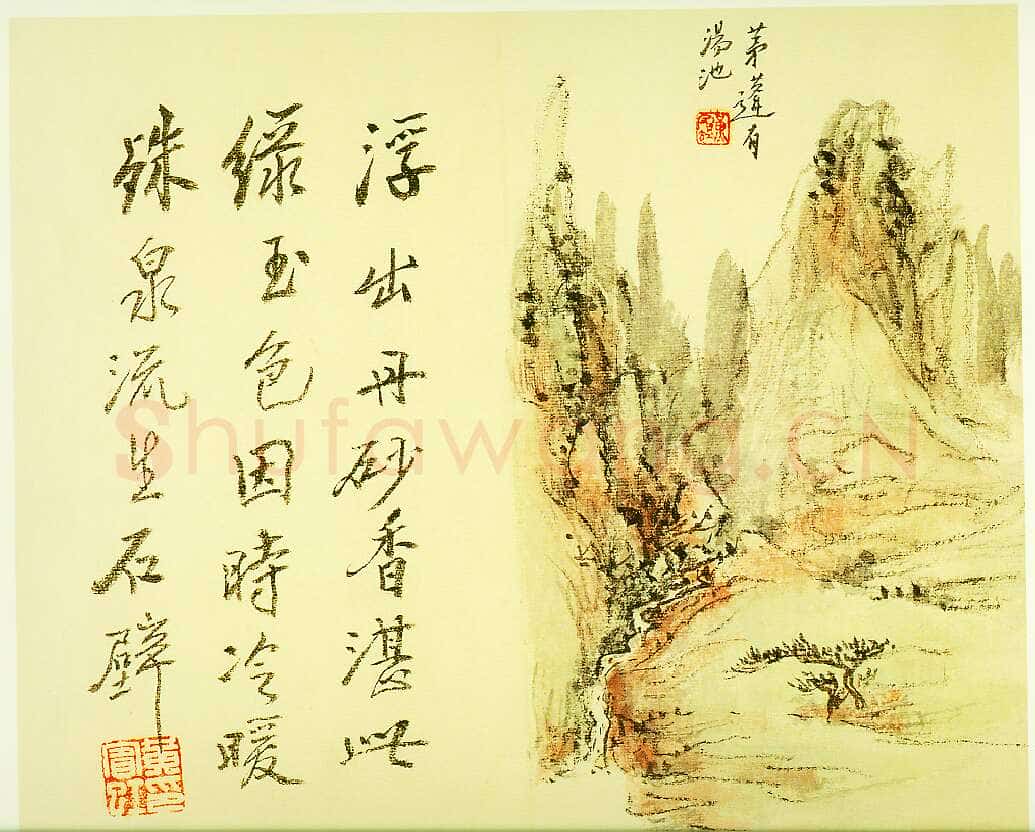 茅蓬有
湯池
浮出丹砂香湛此
緑玉色因時冷暖
殊泉流生石壁
Shufawang.CN